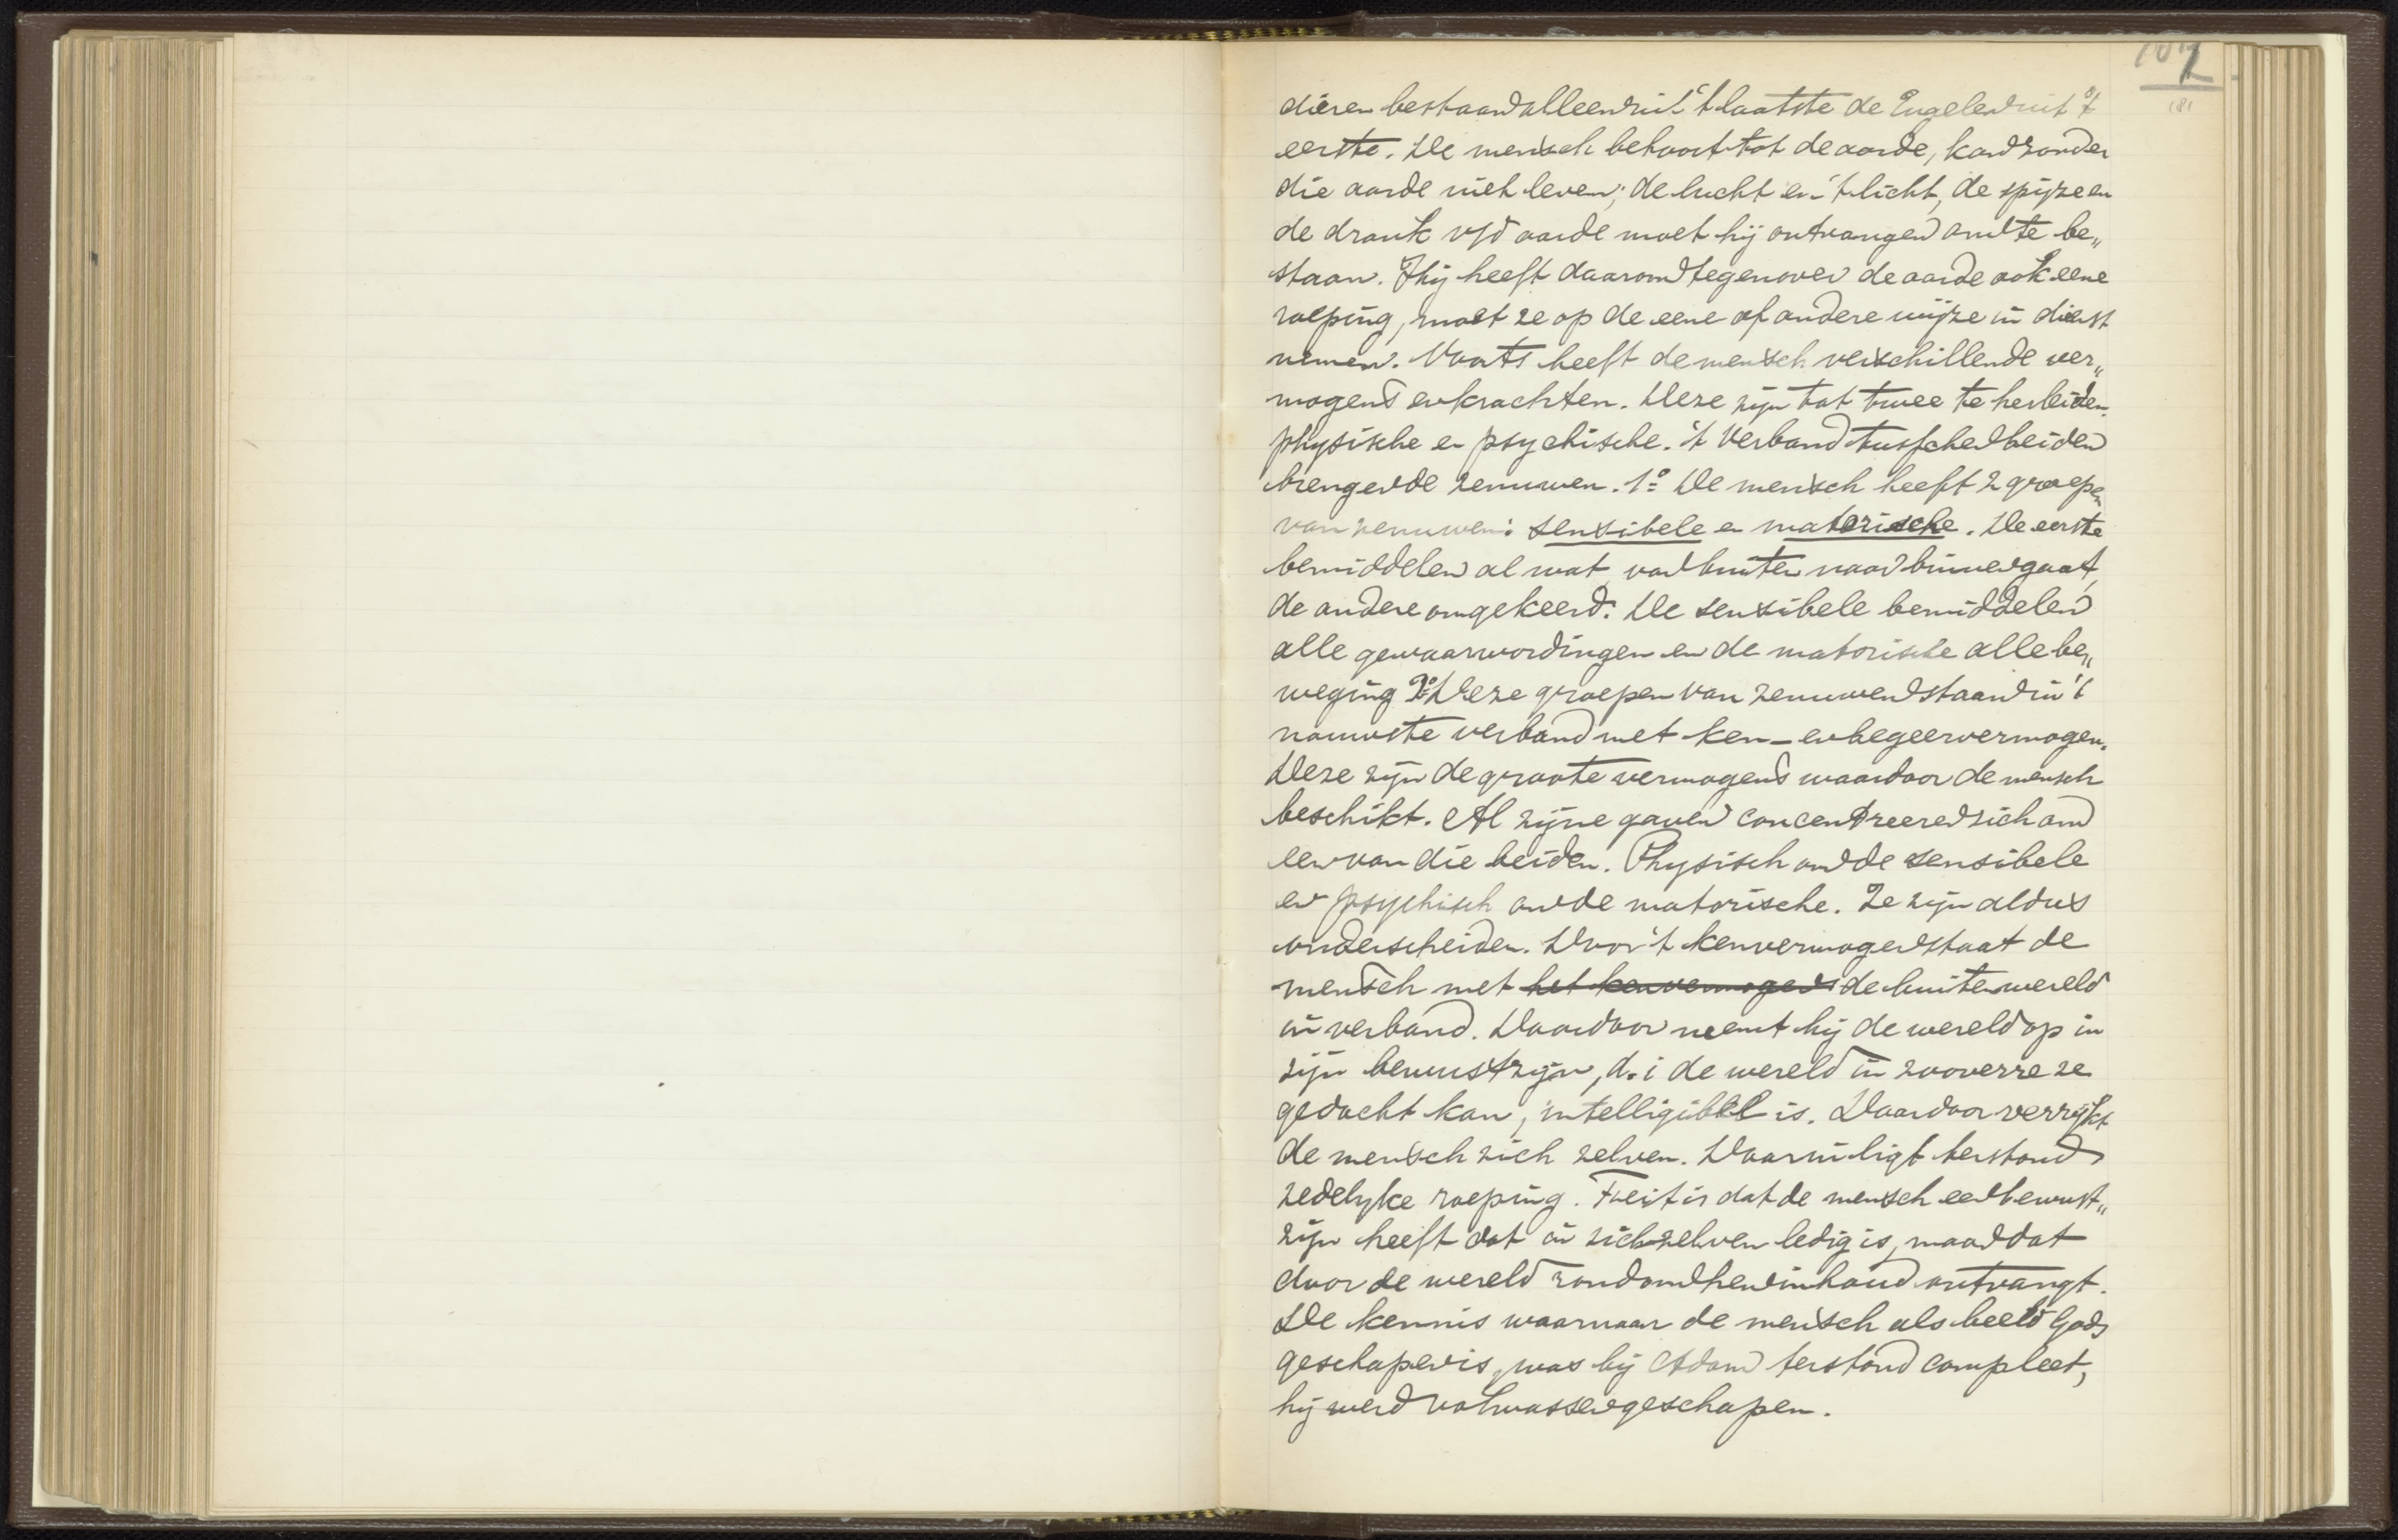 107
181
dieren bestaan alleen uit 't laatste de Engelen uit 't
eerste. De mensch behoort tot de aarde, kan zonder
die aarde niet leven; de lucht en 't licht, de spijze en
de drank v/d aarde moet hij ontvangen om te be„
staan. Hij heeft daarom tegenover de aarde ook eene
roeping, moet ze op de eene of andere wijze in dienst
nemen. Voorts heeft de mensch verschillende ver„
mogens en krachten. Deze zijn tot twee te herleiden
physische en psychische. 't Verband tusschen beiden
brengen de zenuwen. 1º De mensch heeft 2 groepen
van zenuwen: sensibele en motorische. De eerste
bemiddelen al wat van buiten naar binnen gaat,
de andere omgekeerd. De sensibele bemiddelen
alle gewaarwordingen en de motorische alle be„
weging 2º Deze groepen van zenuwen staan in 't
nauwste verband met ken- en begeervermogen.
Deze zijn de groote vermogens waardoor de mensch
beschikt. Al zijne gaven concentreeren zich om
een van die beiden. Physisch om de sensibele
en psychisch om de motorische. Ze zijn aldus
onderscheiden. Door 't kenvermogen staat de
mensch met het kenvermogen de buitenwereld
in verband. Daardoor neemt hij de wereld op in
zijn bewustzijn, d.i de wereld in zooverre ze
gedacht kan, intelligibel is. Daardoor verrijkt
de mensch zich zelven. Daarin ligt terstond
zedelyke roeping. Feit is dat de mensch een bewust„
zijn heeft dat in zichzelven ledig is, maar dat
door de wereld rondom hen inhoud ontvangt.
De kennis waarnaar de mensch als beeld Gods
geschapen is, was bij Adam terstond compleet,
hij werd volwassen geschapen.